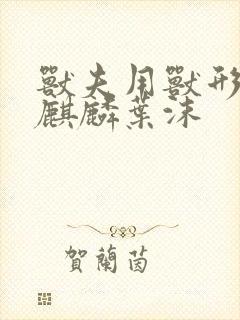 獸夫用獸形
麒麟葉沫
賀蘭茵